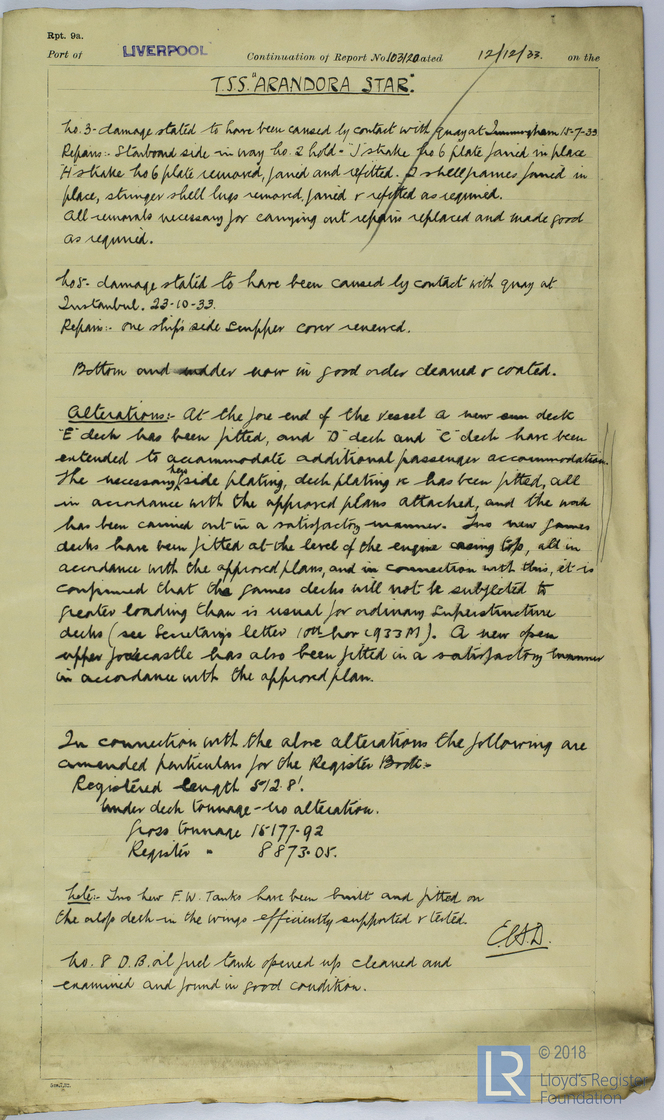 Rpt. 9a.
Port of LIVERPOOL Continuation of Report No 103120 dated 12/12/33. on the
T.S.S. "ARANDORA STAR".
No. 3 - damage stated to have been caused by contact with quay at Immingham 15-7-33
Repairs:- Starboard side in way No. 2 hold - "J" strake No 6 plate faired in place
"H" strake No 6 plate removed, faired and refitted. 2 shell frames faired in
place, stringer shell lugs removed, faired & refitted as required.
All removals necessary for carrying out repairs replaced and made good
as required.
No 5 - damage stated to have been caused by contact with quay at
Instanbul. 23-10-33.
Repairs:- one ship's side scupper cover renewed.
Bottom and rudder now in good order cleaned & coated.
Alterations:- At the fore end of the vessel a new sun deck
"E" deck has been fitted, and "D" deck and "C" deck have been
extended to accommodate additional passenger accommodation.
The necessary new side plating, deck plating &c has been fitted, all
in accordance with the approved plans attached, and the work
has been carried out in a satisfactory manner. Two new games
decks have been fitted at the level of the engine casing top, all in
accordance with the approved plans, and in connection with this, it is
confirmed that the games decks will not be subjected to
greater loading than is usual for ordinary superstructure
decks (see Secretary's letter 10th Nov 1933 M). A new open
upper forecastle has also been fitted in a satisfactory manner
in accordance with the approved plan.
In connection with the above alterations the following are
amended particulars for the Register Book:-
Registered length 512.8'.
Under deck tonnage - no alteration.
Gross tonnage 15177.92
Register " 8873.05.
Note:- Two new F.W. Tanks have been built and fitted on
the orlop deck in the wings efficiently supported & tested.
No. 8 D.B. oil fuel tank opened up cleaned and
examined and found in good condition.
LR © 2018
Lloyd's Register
Foundation